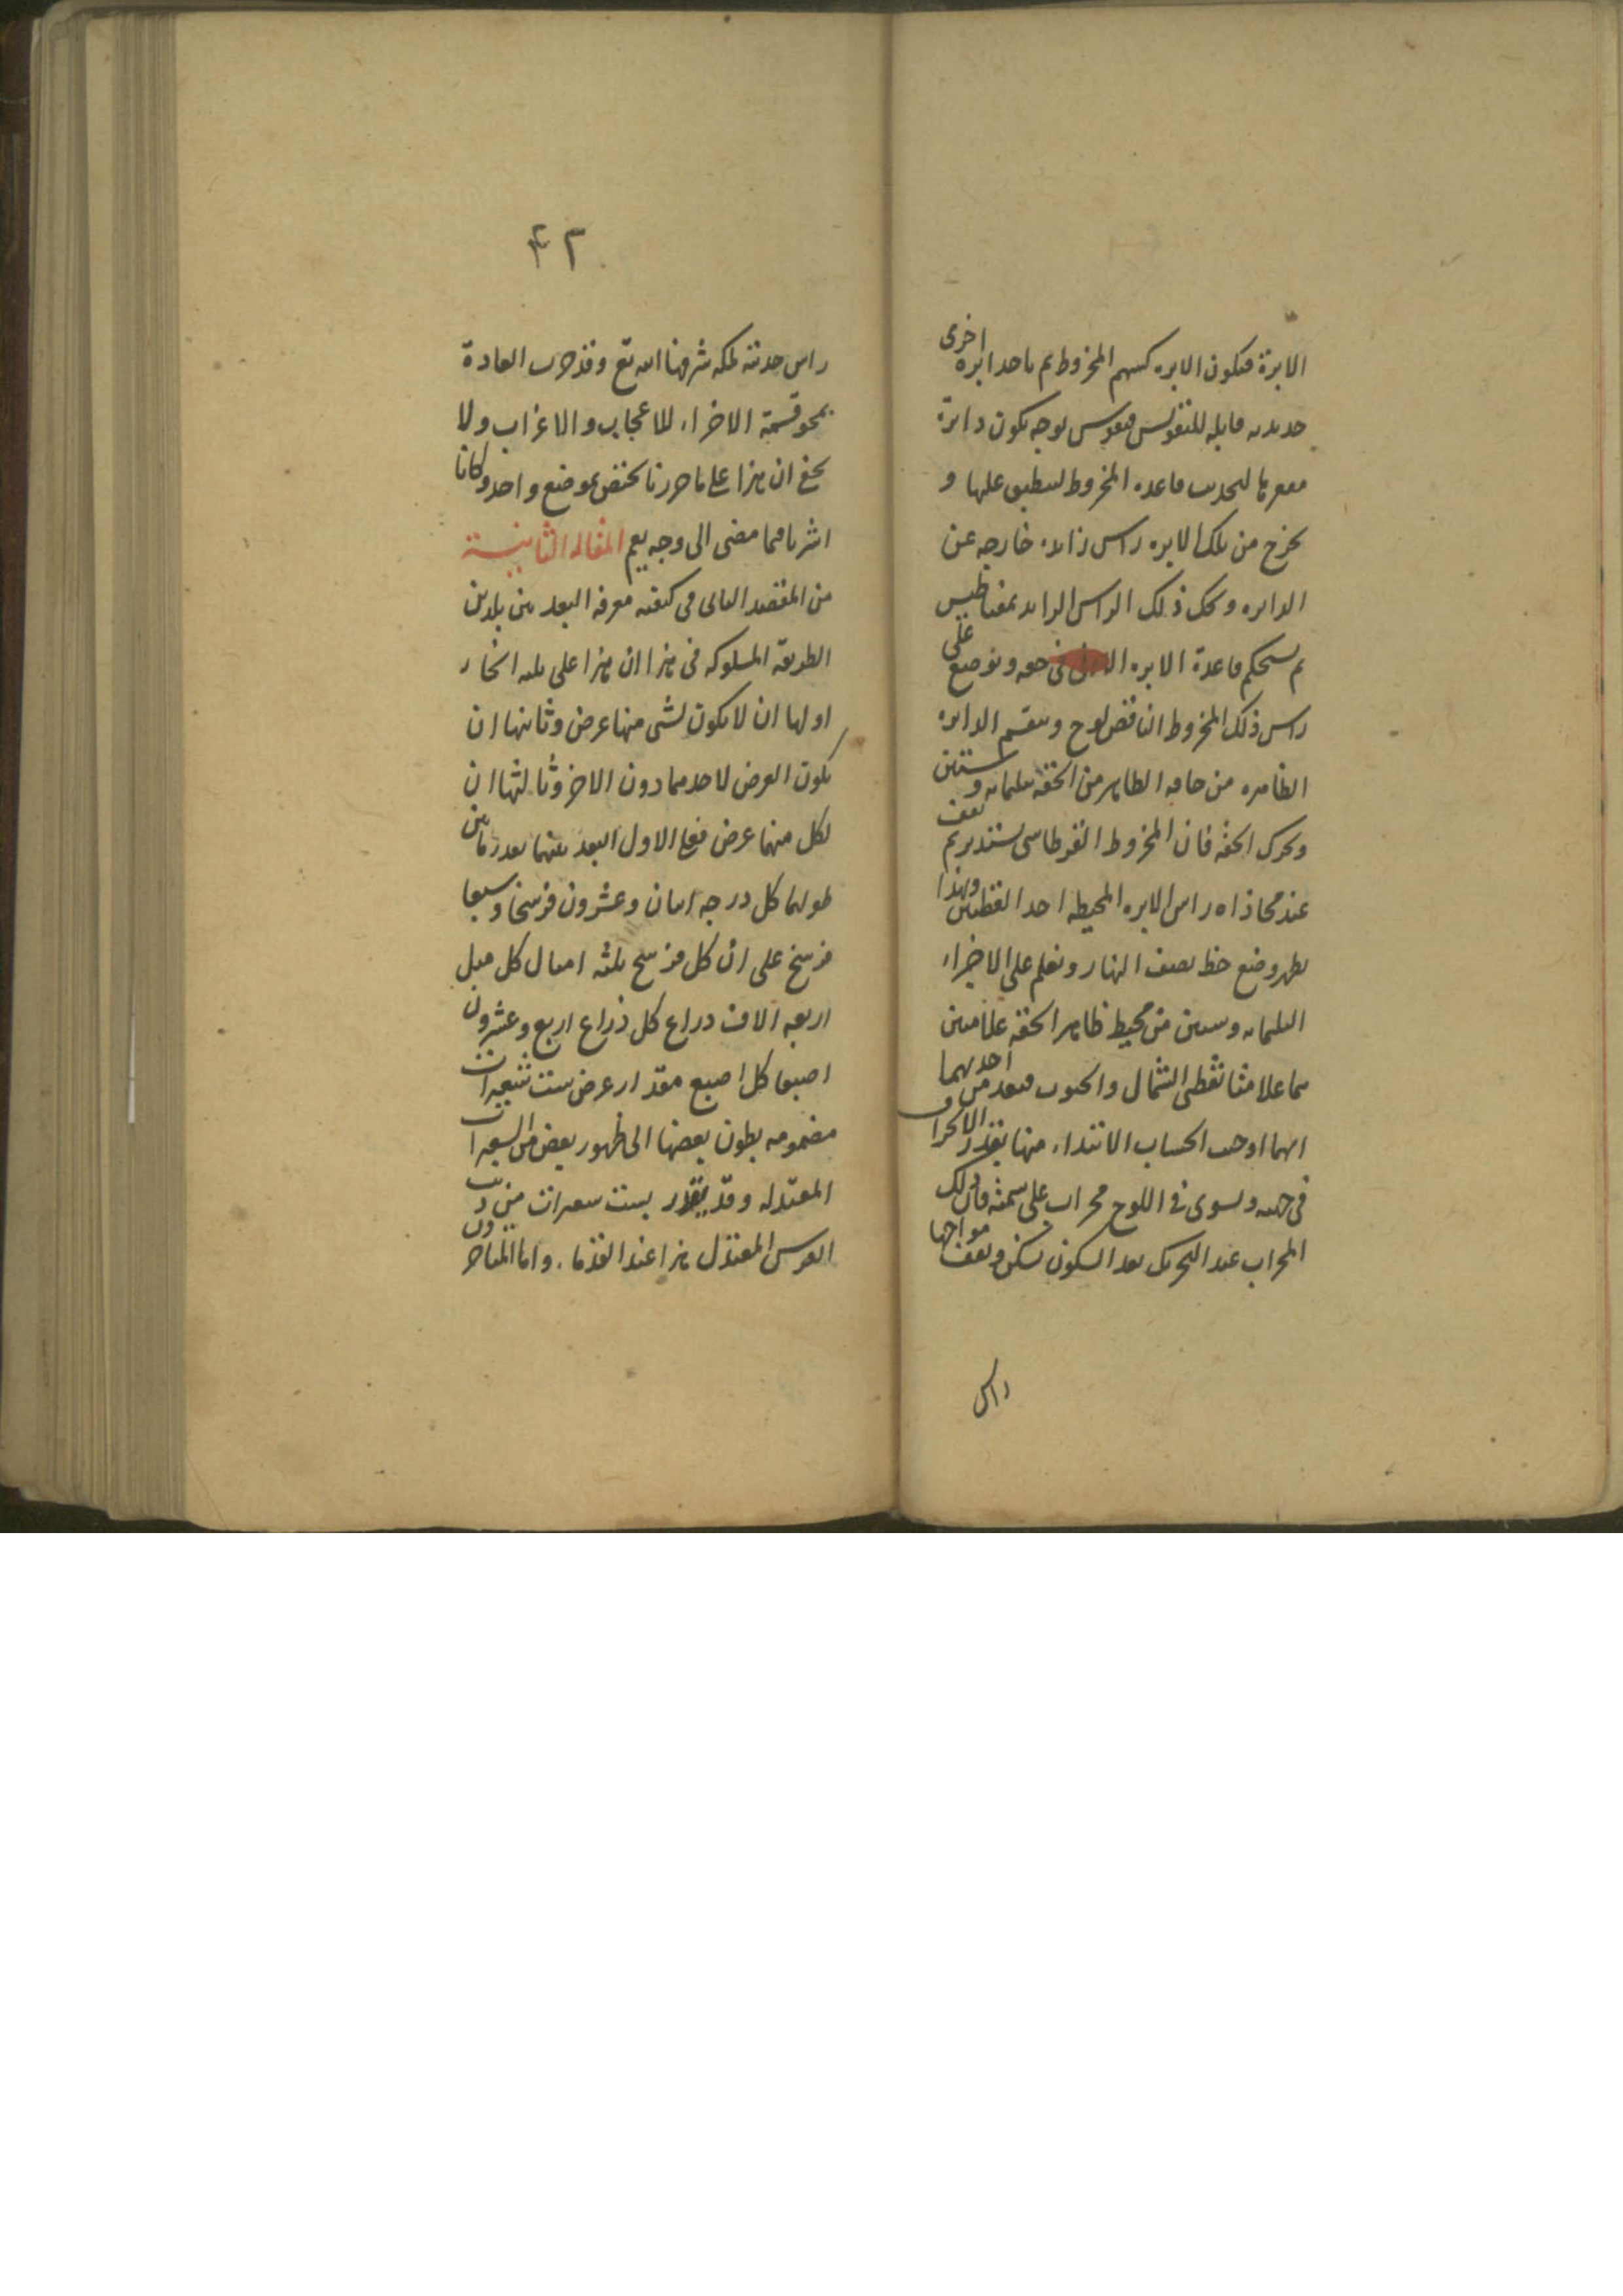 الابرة فتكون الابره كسهم المخروط ثم ياخذ ابره اخرى
حديديه قابله للتقويس فتقوس بوجه يكون دايرة
مقعرها لمحدب قاعده المخروط لينطبق عليها و
يخرج من تلك الابره راس زايد خارجه عن
الدايره ويحك ذلك الراس الزايد بمغناطيس
ثم يستحكم قاعدة الابره فى حقه ويوضع على
راس ذلك المخروط الناقص لوح ويقسم الدايره
الظاهره من حافه الظاهر من الحقه بثلثمايه وستين
ويحرك الحقه فان المخروط القرطاسى يستدير ثم يقف
عند محاذاه راس الابره المحيطه احد القطبين وبهذا
يظهر وضع خط نصف النهار ونعلم على الاجزاء
الثلثمايه وستين من محيط ظاهر الحقه علامتين
هما علامتا نقطى الشمال والجنوب فيعد من احديهما
ايهما اوجب الحساب الابتداء منها بقدر الانحراف
فى جهته ويسوى فى اللوح محراب على سمته فان ذلك
المحراب عند التحريك بعد السكون يسكن ويقف مواجها
راس
۴۲
راس حدبته لمكه شرفها الله تع وقد جرت العادة
بمحو قسمة الاجزاء للاعجاب والاغراب ولا
يخفى ان هذا على ما حررنا يختص بموضع واحد وكانا
اشرنا فيما مضى الى وجه يعم المقاله الثانية
من المقصد الثانى فى كيفيه معرفه البعد بين بلدين
الطريقه المسلوكه فى هذا ان هذا على ثلثه انحاء
اولها ان لا يكون لشى منها عرض وثانيها ان
يكون العرض لاحدهما دون الاخر وثالثها ان
لكل منهما عرض فعلى الاول البعد بينهما بعد زمانين
طولهما كل درجه اثنان وعشرون فرسخا وسبعا
فرسخ على ان كل فرسخ ثلثه اميال كل ميل
اربعه الاف ذراع كل ذراع اربع وعشرون
اصبعا كل اصبع مقدار عرض ست شعيرات
مضمومه بطون بعضها الى ظهور بعض من الشعيرات
المعتدله وقد يقدر بست شعرات من ذنب
الفرس المعتدل هذا عند القدما، واما المتاخرون